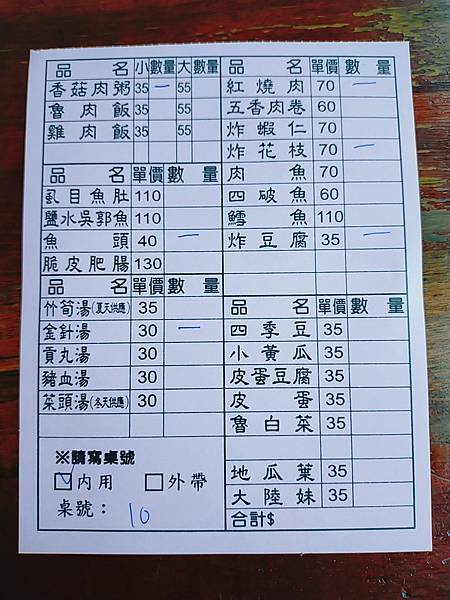 品 名 小 數量 大 數量
香菇肉粥 35 一 55
魯肉飯 35 55
雞肉飯 35 55
品 名 單價 數 量
虱目魚肚 110
鹽水吳郭魚 110
魚 頭 40 一
脆皮肥腸 130
品 名 單價 數 量
竹筍湯(夏天供應) 35
金針湯 30 一
貢丸湯 30
豬血湯 30
菜頭湯(冬天供應) 30
※請寫桌號
☑內用 □外帶
桌號： 10
品 名 單價 數 量
紅燒肉 70 一
五香肉卷 60
炸蝦仁 70
炸花枝 70 一
肉 魚 70
四破魚 60
鱈 魚 110
炸豆腐 35 一
品 名 單價 數 量
四季豆 35
小黃瓜 35
皮蛋豆腐 35
皮 蛋 35
魯白菜 35
地瓜葉 35
大陸妹 35
合計$